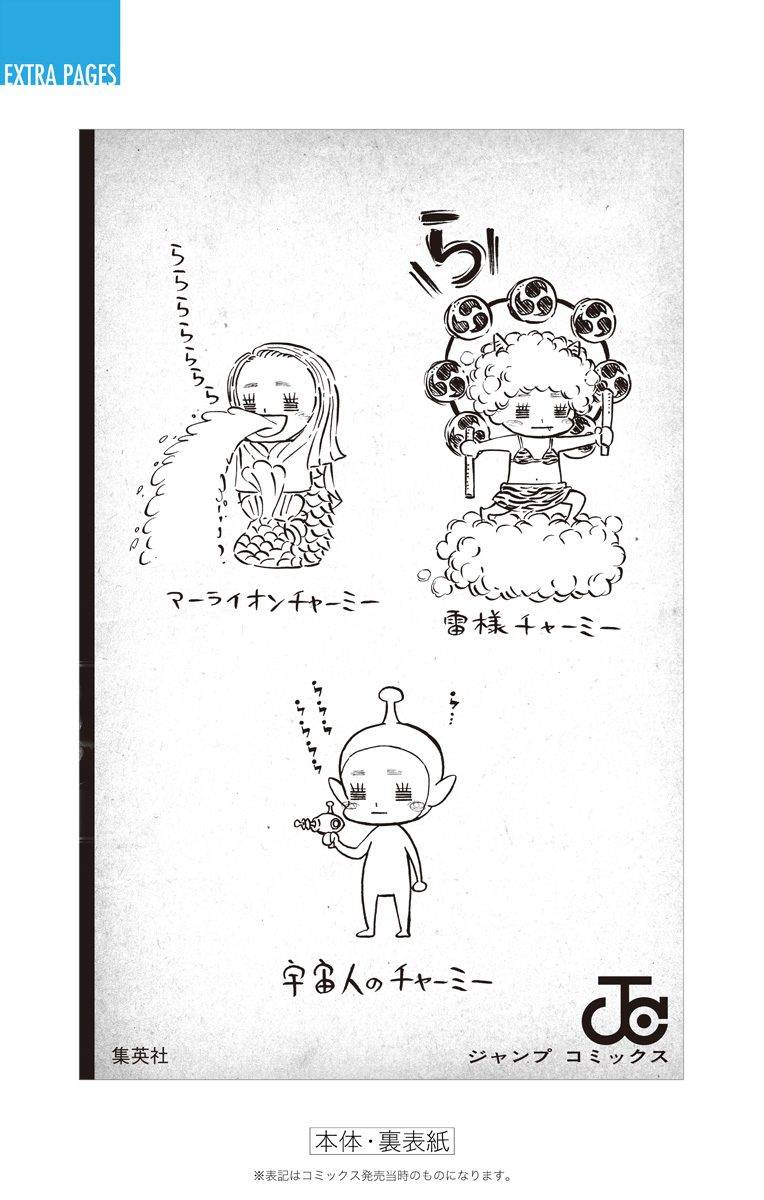 EXTRA PAGES
ら
らららららららら
マーライオンチャーミー
雷様チャーミー
らららら
らららら
ら…
宇宙人のチャーミー
JC
集英社
ジャンプ コミックス
本体・裏表紙
※表記はコミックス発売当時のものになります。